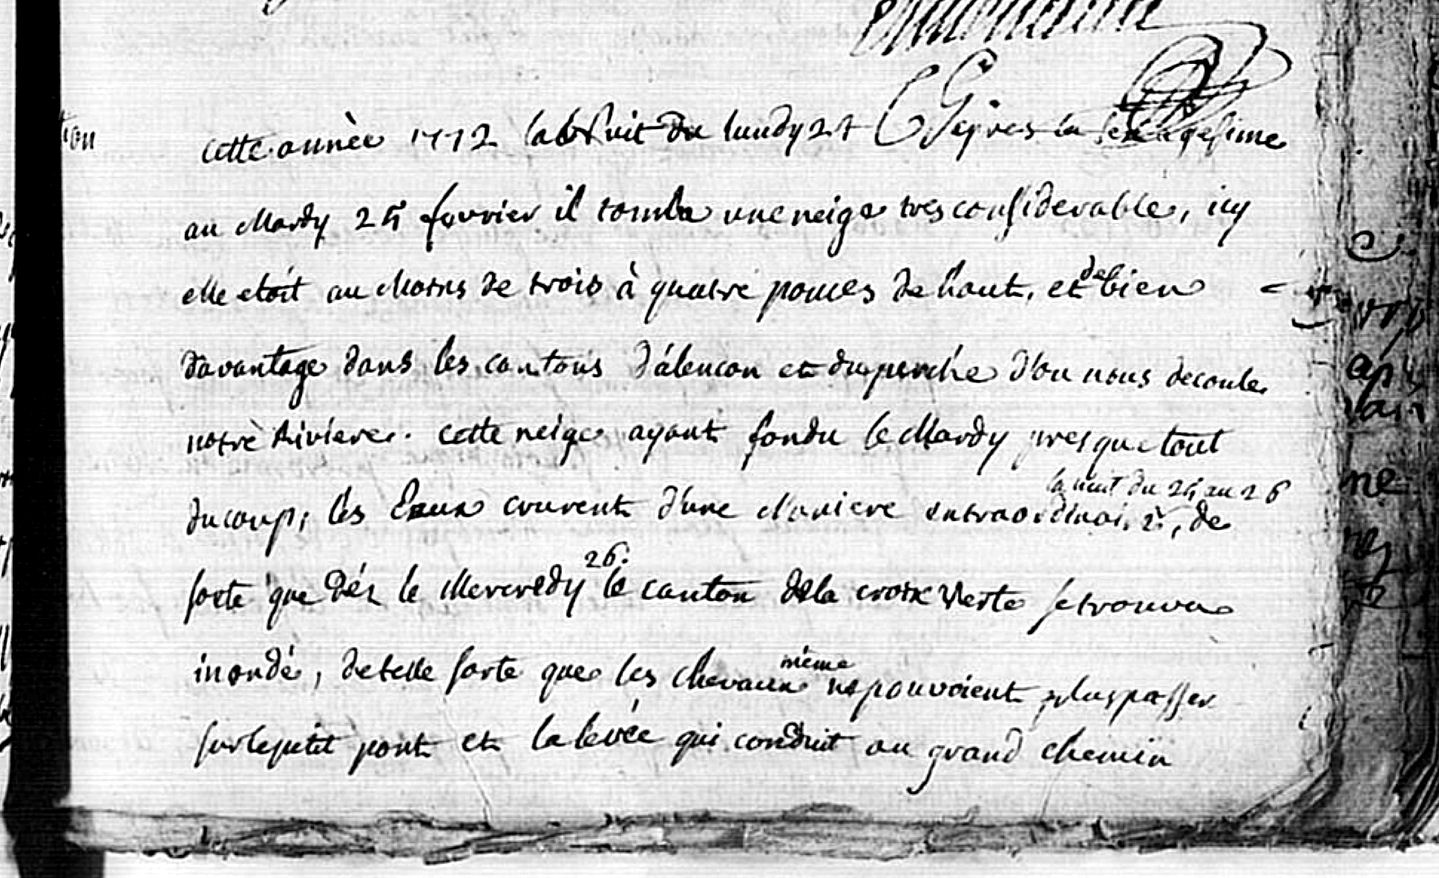 cette année 1772 la Nuit du lundy 24 après la sexagesime
au Mardy 25 fevrier il tomba une neige tres considerable, icy
elle etoit au Moins de trois à quatre pouces de haut, et de bien
davantage dans les cantons d'alencon et du perche d'ou nous decoule
notre Riviere. Cette neige ayant fondu le Mardy presque tout
la nuit du 25 au 26
du coup, les Eaux crurent d'une Maniere extraordinaire, de
26.
sorte que dés le Mercredy le canton dela croix Verte se trouva
même
inondé, de telle sorte que les chevaux ne pouvoient plus passer
sur le petit pont et la levée qui conduit au grand chemin